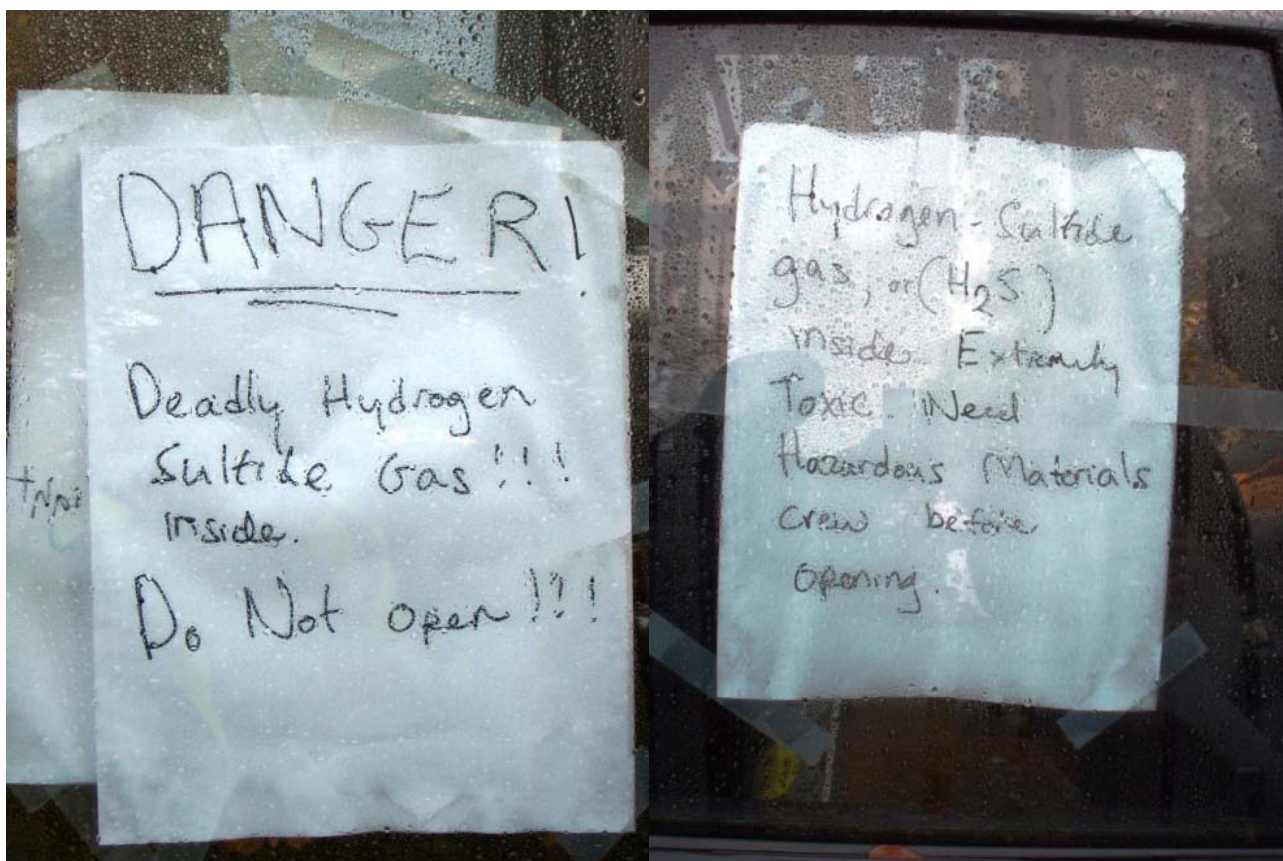 DANGER!
Deadly Hydrogen
Sulfide Gas!!!
inside.
Do Not open!!!
Hydrogen-Sulfide
gas, or (H₂S)
inside Extremely
Toxic. Need
Hazardous Materials
crew before
opening.